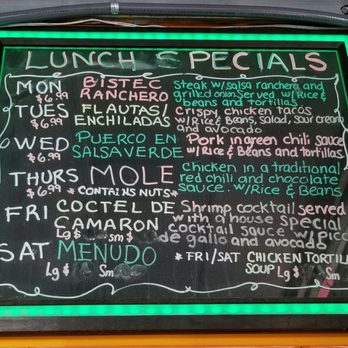 LUNCH SPECIALS
MON BISTEC Steak w/salsa ranchera and
$6.99 RANCHERO grilled onion served w/Rice &
beans and tortillas
TUES FLAUTAS/ Crispy chicken tacos
$6.99 ENCHILADAS w/Rice & Beans, Salad, sour cream
and avocado
WED PUERCO EN Pork in green chili sauce
$6.99 SALSA VERDE w/Rice & Beans and tortillas
THURS MOLE Chicken in a traditional
$6.99 *CONTAINS NUTS* red chili and chocolate
sauce. w/Rice & Beans
FRI COCTEL DE Shrimp cocktail served
CAMARON with a house special
Lg $ Sm $ cocktail sauce w/pico
de gallo and avocado
SAT MENUDO * FRI/SAT CHICKEN TORTILL
Lg $ Sm SOUP Lg $ Sm